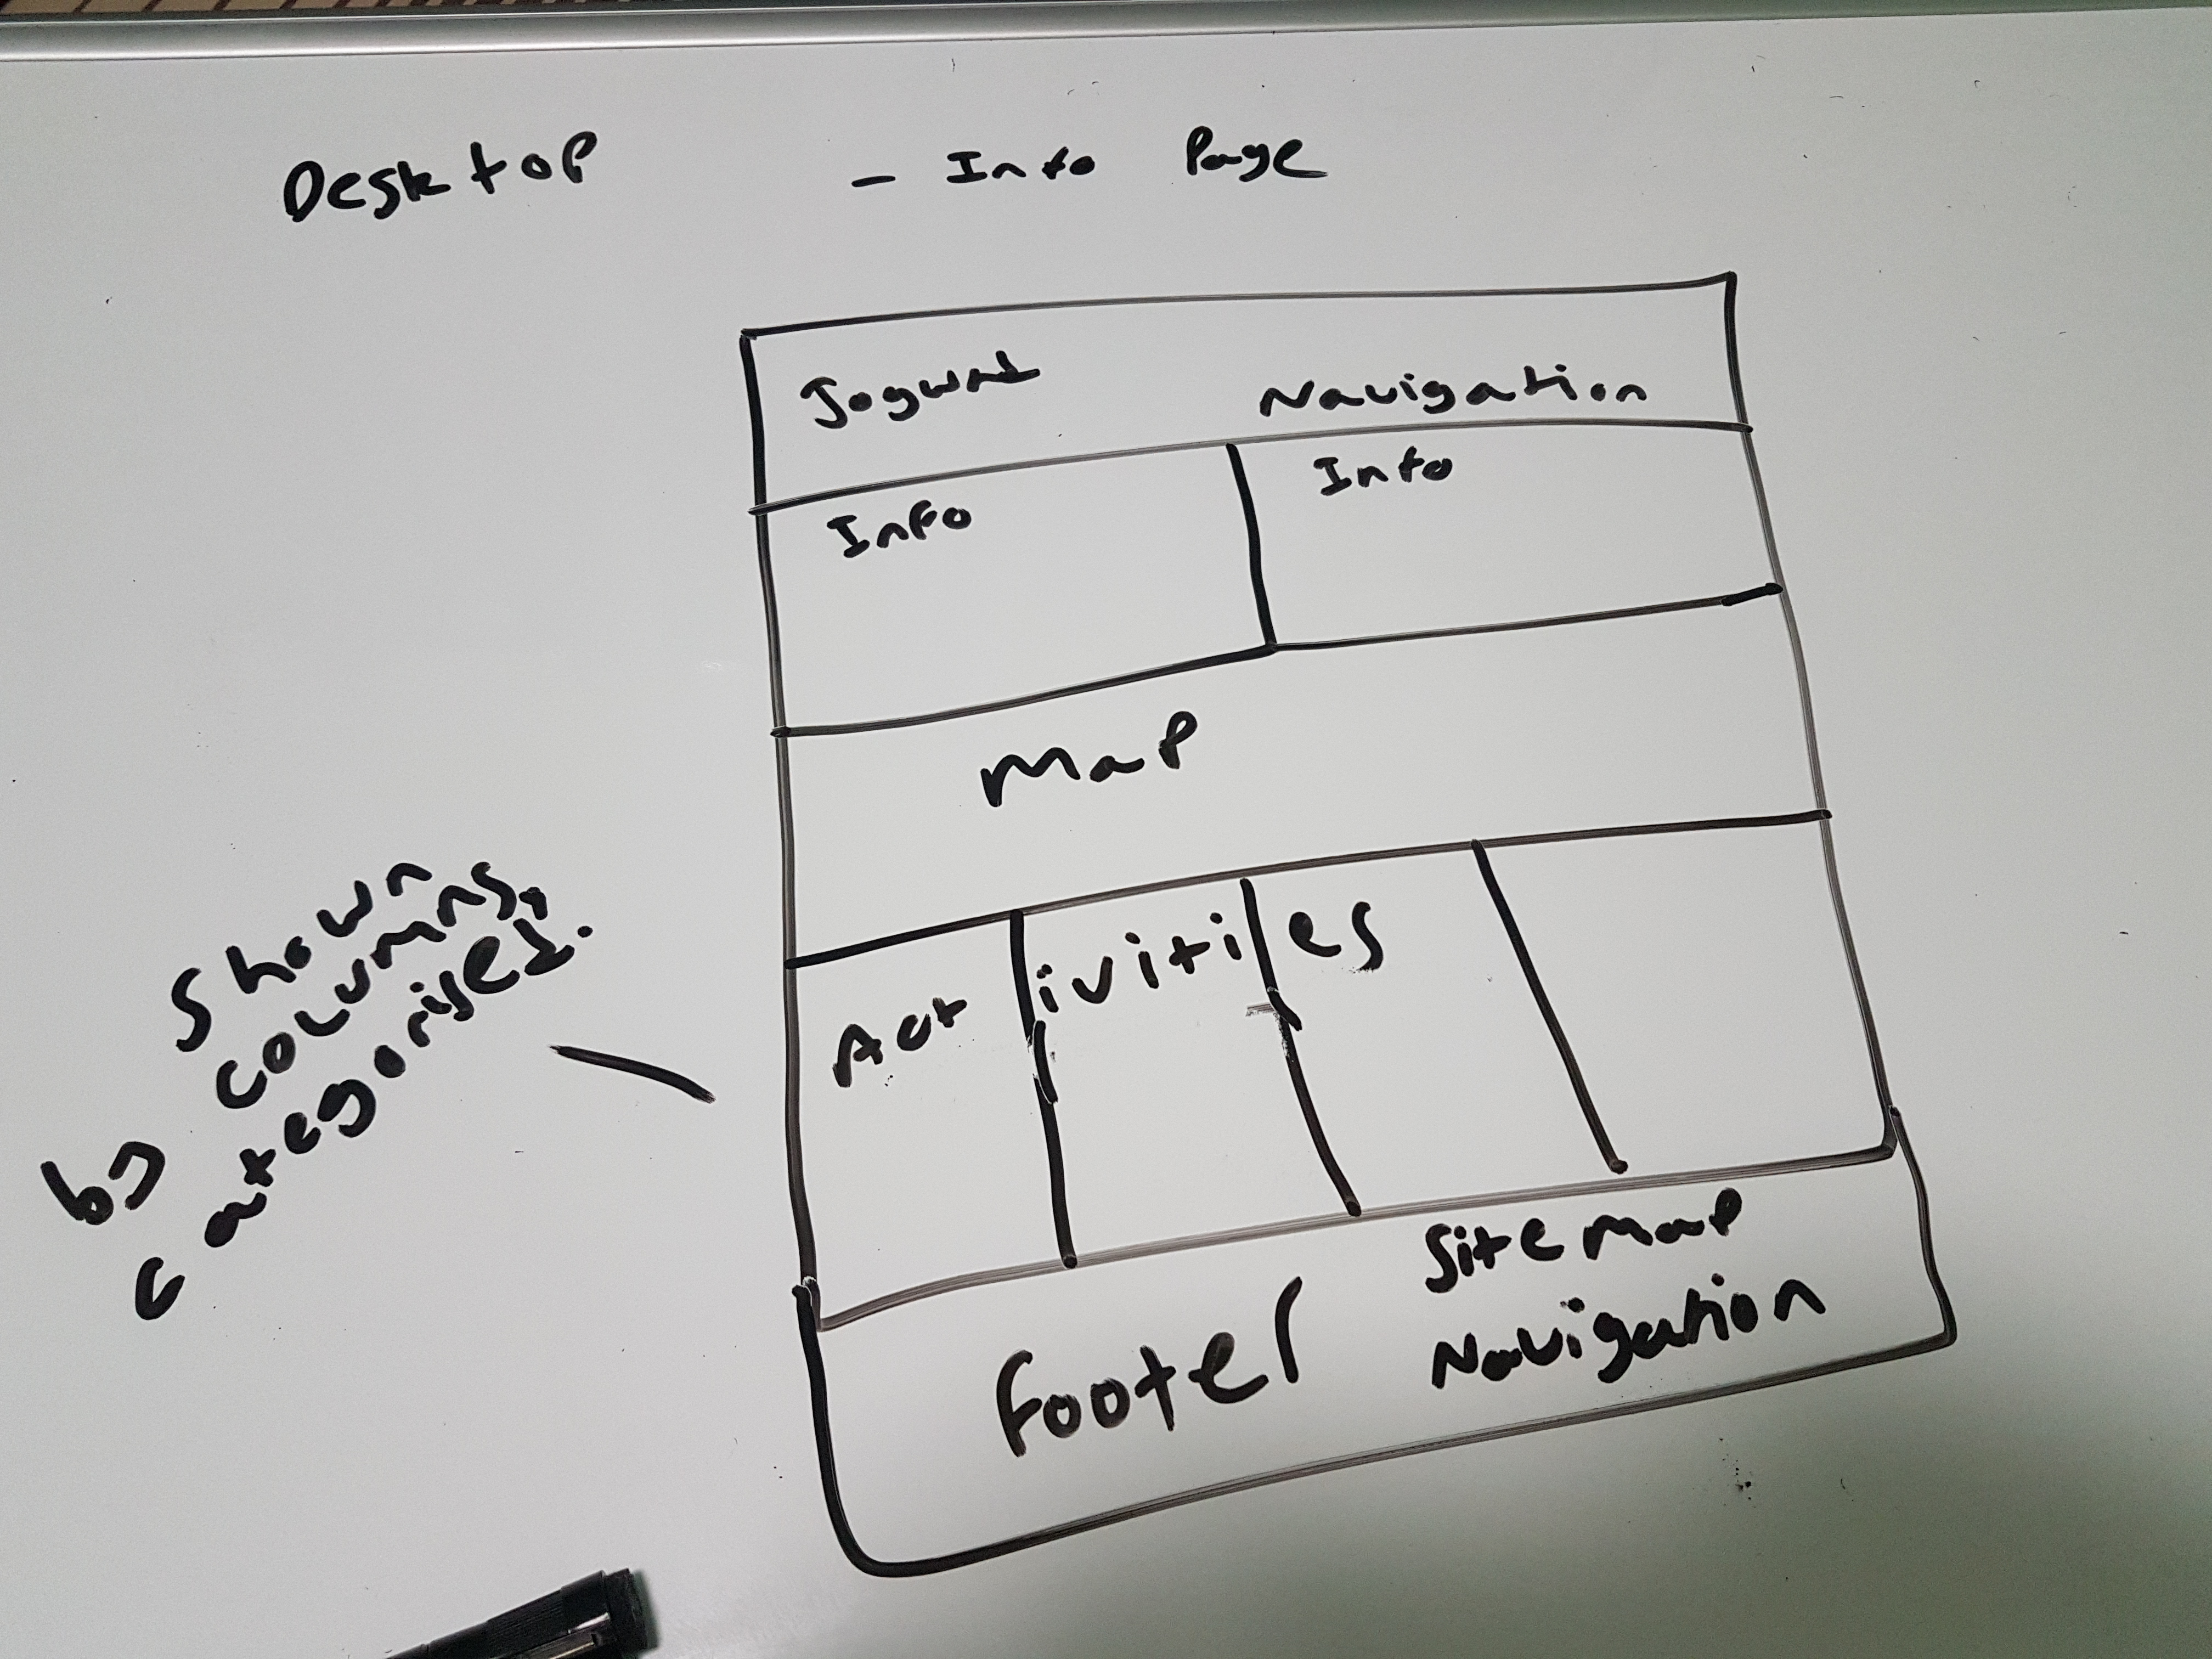 Desktop - Info Page
Navigation
Info Info
Map
Activities
Shown
by columns,
categorised.
Sitemap
Footer Navigation